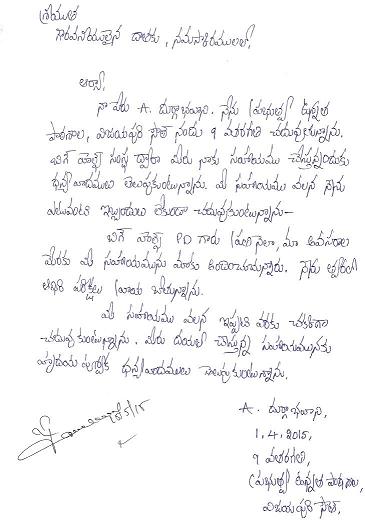 శ్రీయుత
గౌరవనీయులైన దాతకు, నమస్కారములు,
ఆర్యా,
నా పేరు A. దుర్గాభవాని. నేను ప్రభుత్వ ఉన్నత
పాఠశాల, విజయపురి సౌత్ నందు 9 వ తరగతి చదువుచున్నాను.
సంస్థ ద్వారా మీరు నాకు సహాయము చేస్తున్నందుకు
ధన్యవాదములు తెలుపుకుంటున్నాను. మీ సహాయము వలన నేను
ఎటువంటి ఇబ్బందులు లేకుండా చదువుకుంటున్నాను-
PD గారు ప్రతి నెలా, మా అవసరాల
మేరకు మీ సహాయమును మాకు అందించుచున్నారు. నేను త్వరలో
పరీక్షలు వ్రాయ బోతున్నాను.
మీ సహాయము వలన ఇప్పటి వరకు చక్కగా
చదువుకుంటున్నాను. మీరు దయతో చేస్తున్న సహాయమునకు
హృదయ పూర్వక ధన్యవాదములు తెలుపుకుంటున్నాను.
A. దుర్గాభవాని,
1.4.2015,
9 వ తరగతి,
ప్రభుత్వ ఉన్నత పాఠశాల,
విజయపురి సౌత్.